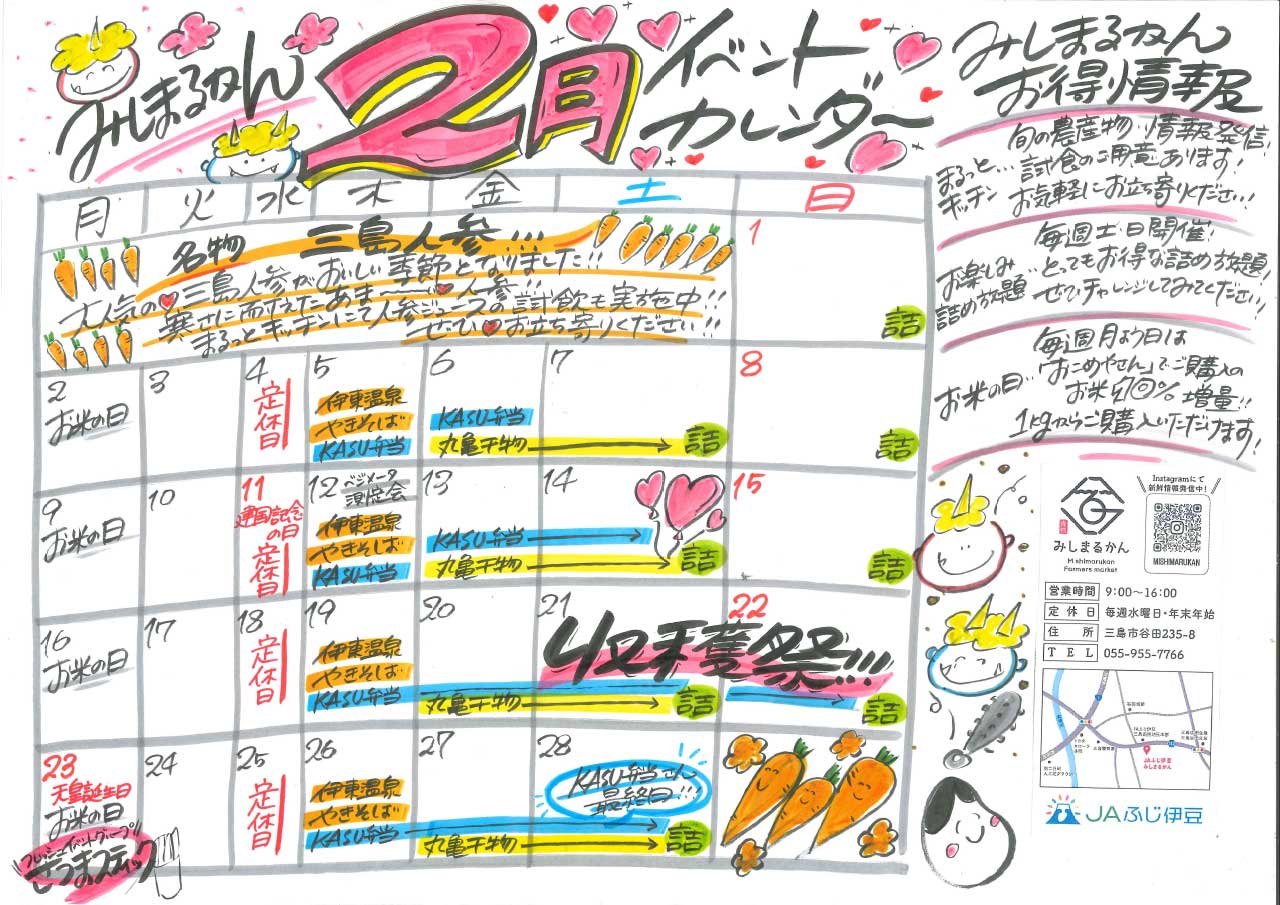 みしまるかん
2月
イベント
カレンダー
月 火 水 木 金 土 日
名物 三島人参!!!
大人気の♥三島人参がおいしい季節となりました!!
寒さに耐えたあま〜〜♥人参!!
まるっとキッチンにて人参ジュースの試飲も実施中!!
ぜひ♥お立ち寄りください!!
1
詰
2 3 4 5 6 7 8
お米の日
定休日
伊東温泉
やきそば
KASU弁当
KASU弁当
丸亀干物
詰
詰
9 10 11 12 13 14 15
お米の日
建国記念の日
定休日
ベジメータ
測定会
伊東温泉
やきそば
KASU弁当
KASU弁当
丸亀干物
詰
詰
16 17 18 19 20 21 22
お米の日
定休日
伊東温泉
やきそば
KASU弁当
丸亀干物
収穫祭!!!
詰
詰
23 24 25 26 27 28
天皇誕生日
お米の日
フレッシュイベントグループ!!
さつまスティック
定休日
伊東温泉
やきそば
KASU弁当
丸亀干物
KASU弁当さん
最終日!!!
詰
みしまるかん
お得情報
まるっと…
キッチン
旬の農産物・情報発信!
試食のご用意あります!
お気軽にお立ち寄りください!
お楽しみ
詰め放題…
毎週土・日開催!
とってもお得な詰め放題!
ぜひチャレンジしてみてください!
お米の日…
毎週月よう日は
「おこめやさん」でご購入の
お米10%増量!!
1kgからご購入いただけます!
みしまるかん
Mishimarukan
Farmers market
Instagramにて
新鮮情報発信中!
MISHIMARUKAN
営業時間 9:00〜16:00
定休日 毎週水曜日・年末年始
住所 三島市谷田235-8
TEL 055-955-7766
JAふじ伊豆
みしまるかん
JAふじ伊豆